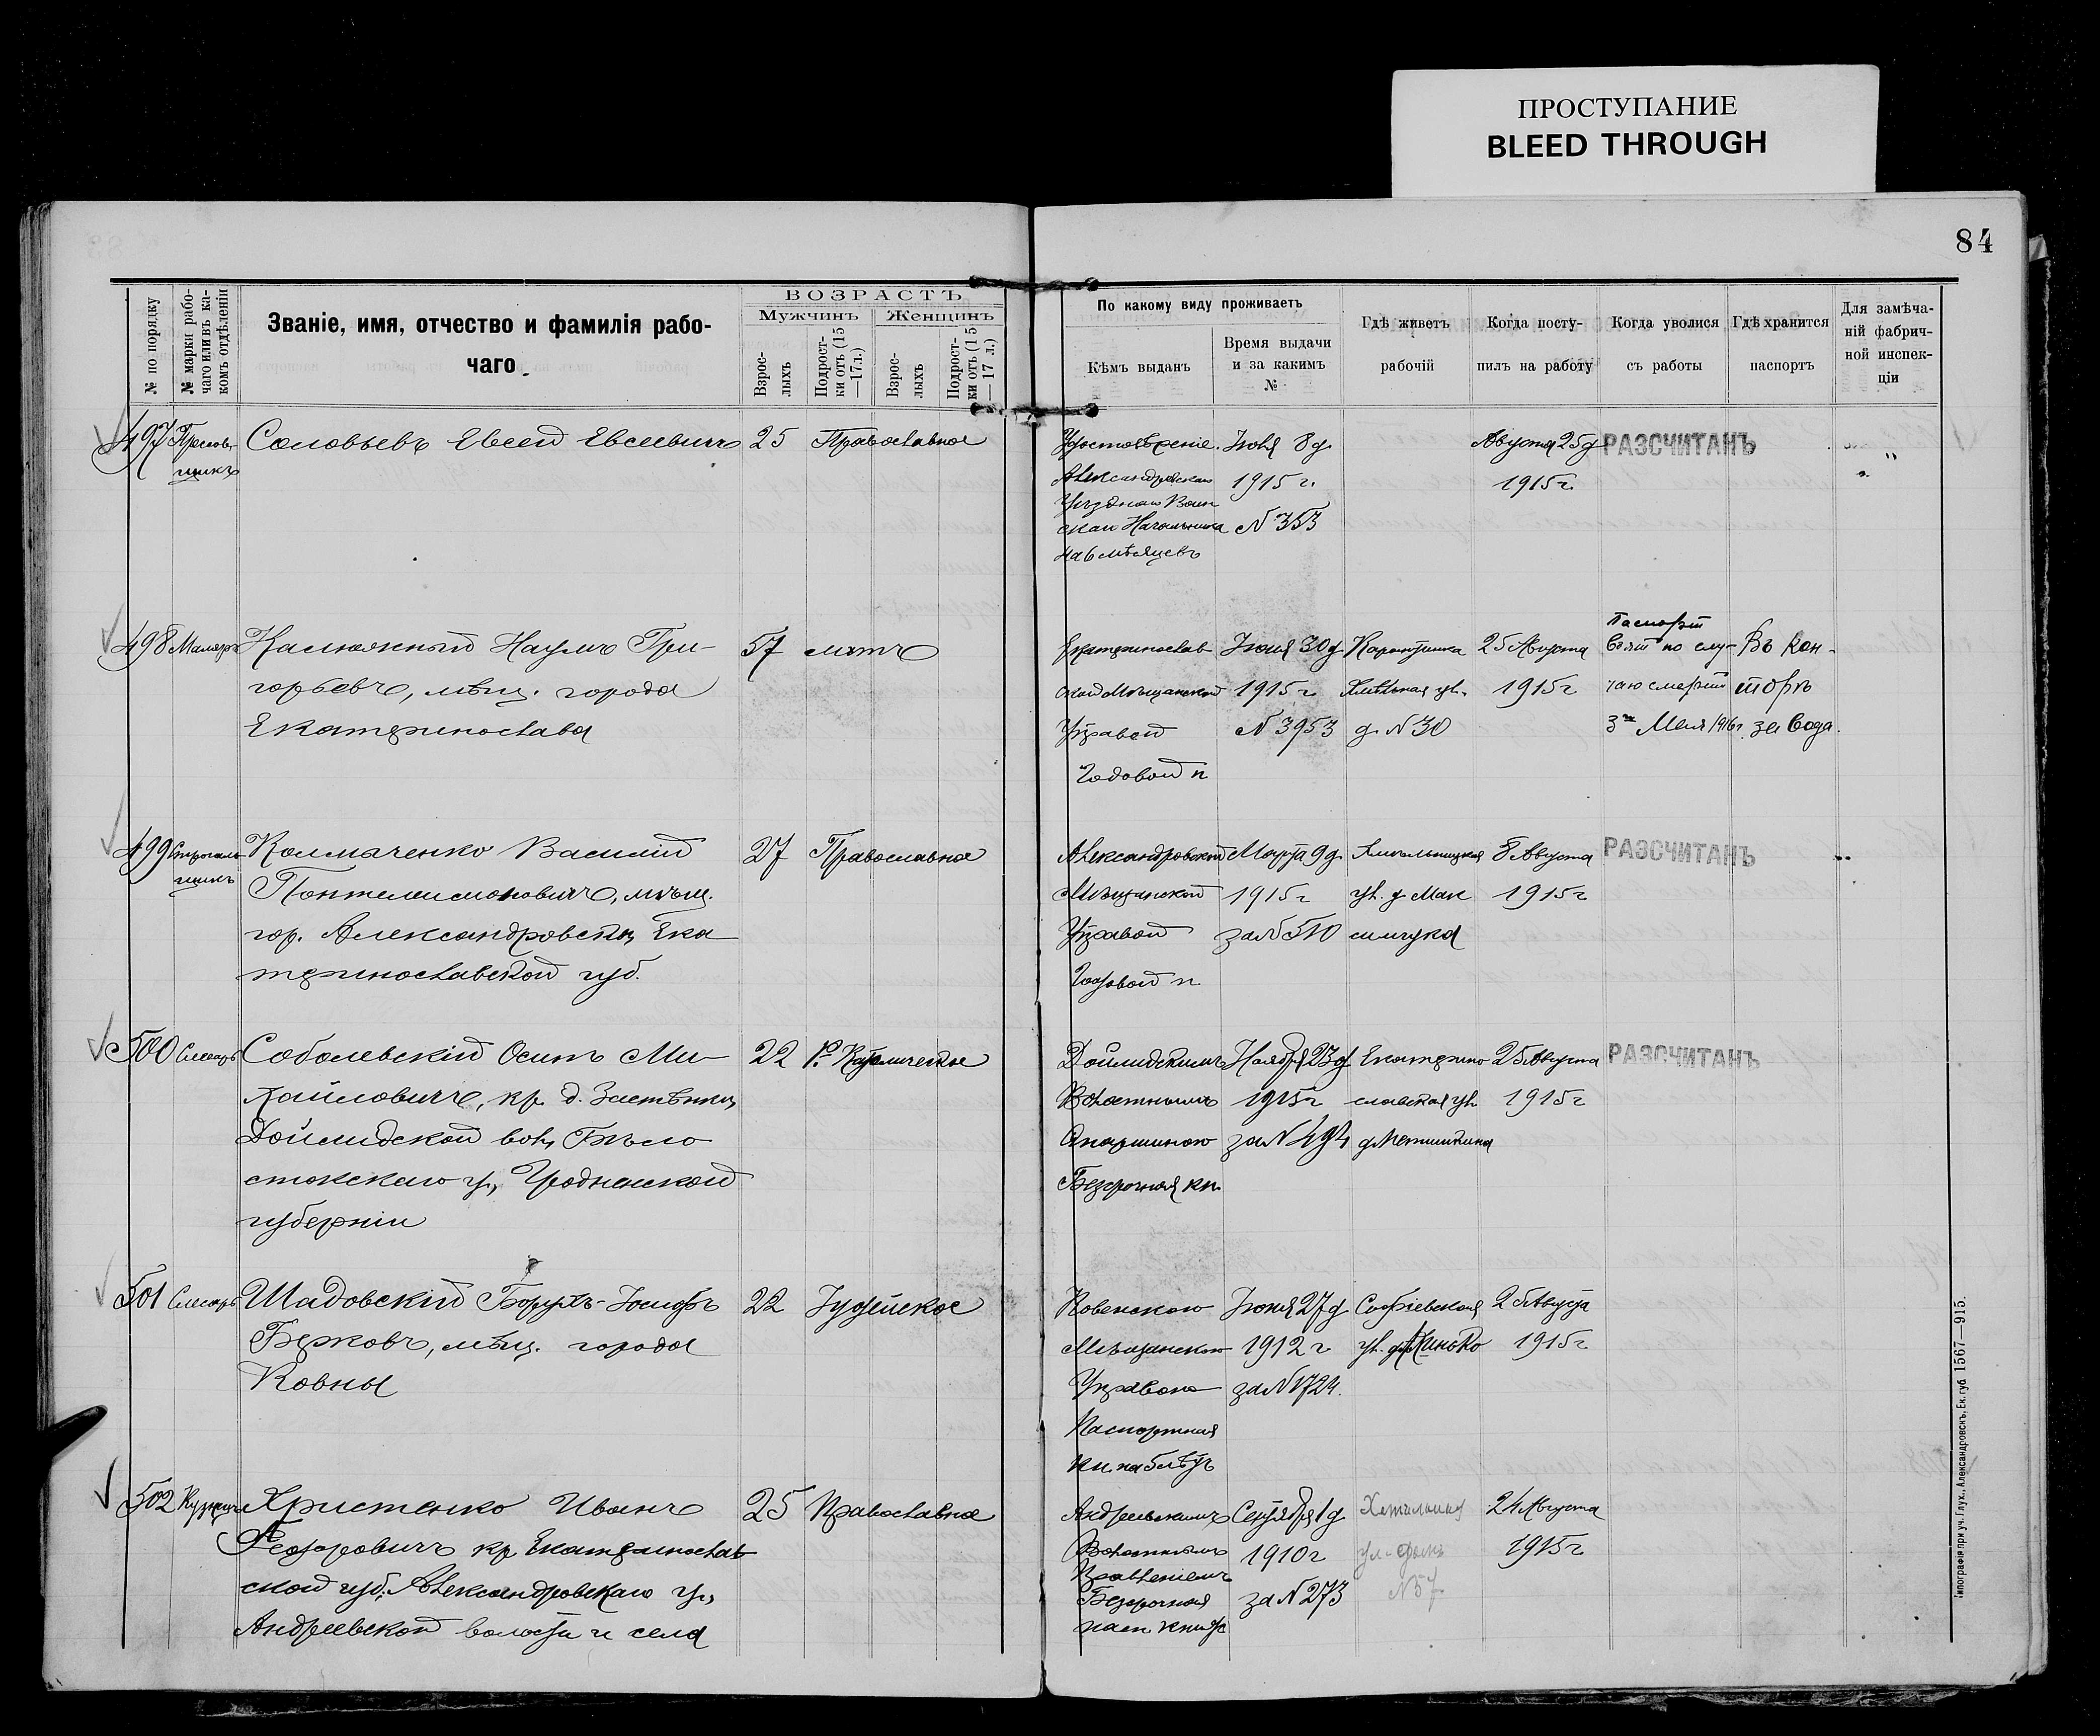 ПРОСТУПАНИЕ
BLEED THROUGH
84
№ по порядку
№ марки рабо-
чаго или въ ка-
комъ отдѣленіи
Званіе, имя, отчество и фамилія рабо-
чаго
ВОЗРАСТЪ
Мужчинъ
Женщинъ
Взрос-
лыхъ
Подрост-
ки отъ (15
—17 л.)
Взрос-
лыхъ
Подрост-
ки отъ (15
—17 л.)
По какому виду проживаетъ
Кѣмъ выданъ
Время выдачи
и за какимъ
№
Гдѣ живетъ
рабочій
Когда посту-
пилъ на работу
Когда уволися
съ работы
Гдѣ хранится
паспортъ
Для замѣча-
ній фабрич-
ной инспек-
ціи
497
Соловьевъ Евсей Евсеевичъ
25
Православное
Удостовѣреніе
Александровскаго
Уѣзднаго Воин
скаго Начальника
на 6 мѣсяцевъ
Іюля 8 д.
1915 г.
№ 353
Августа 25 д
1915 г.
РАЗСЧИТАНЪ
498 Маляръ
Калюжный Наумъ Гри-
горьевъ, мѣщ. города
Екатеринослава
57 лѣтъ
Екатеринослав
ской Мѣщанской
Управой
Годовой п
Іюня 30 д
1915 г
№ 3953
д. № 30
25 Августа
1915 г
Паспорт
взят по слу-
чаю смерти
3го Мая 1916 г.
Въ кон-
торѣ
завода.
499 Строгаль
щикъ
Колмаченко Василій
Пантелеимоновичъ, мѣщ.
гор. Александровска, Ека
теринославской губ.
27
Православное
Александровской
Мѣщанской
Управой
Годовой п
Марта 9 д.
1915 г
за № 510
ул. д Мак
симука
8 Августа
1915 г
РАЗСЧИТАНЪ
500 Слесарь
Соболевскій Осипъ Ми-
хайловичъ, кр. д. Застѣнки,
Дойлидской вол, Бѣло
стокскаго у., Гродненской
губерніи
22
Р. Католическое
Дойлидскимъ
Волостнымъ
Старшиною
Безсрочная кн.
Ноября 23 д
за № 494
Екатерино
славская ул
25 Августа
1915 г
РАЗСЧИТАНЪ
501 Слесарь
Шадовскій Борухъ-Іосифъ
Берковъ, мѣщ. города
Ковны
22
Іудейское
Ковенскою
Мѣщанскою
Управою
Паспортная
кн. на 5 лѣтъ
Іюня 27 д
1912 г
за № 1724.
Софіевская
25 Августа
1915 г
502 Кузнецъ
Христенко Иванъ
Федоровичъ кр. Екатеринослав
ской губ., Александровскаго у.,
Андреевской волости и села
25
Православное
Андреевскимъ
Волостнымъ
Правленіемъ
Безсрочная
пасп. книжк
Сентября 1 д
1910 г
за № 273
24 Августа
1915 г
Типографія при уч. Глух., Александровскъ, Ек. губ. 1567—915.